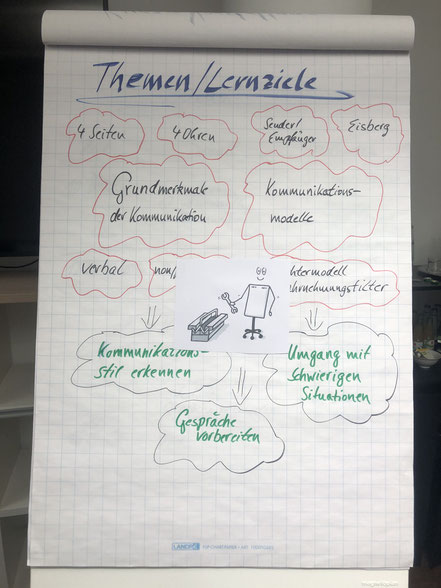 Themen/Lernziele
4 Seiten
4 Ohren
Sender/
Empfänger
Eisberg
Grundmerkmale
der Kommunikation
Kommunikations-
modelle
verbal
Kommunikations-
Stil erkennen
Umgang mit
schwierigen
Situationen
Gespräche
vorbereiten